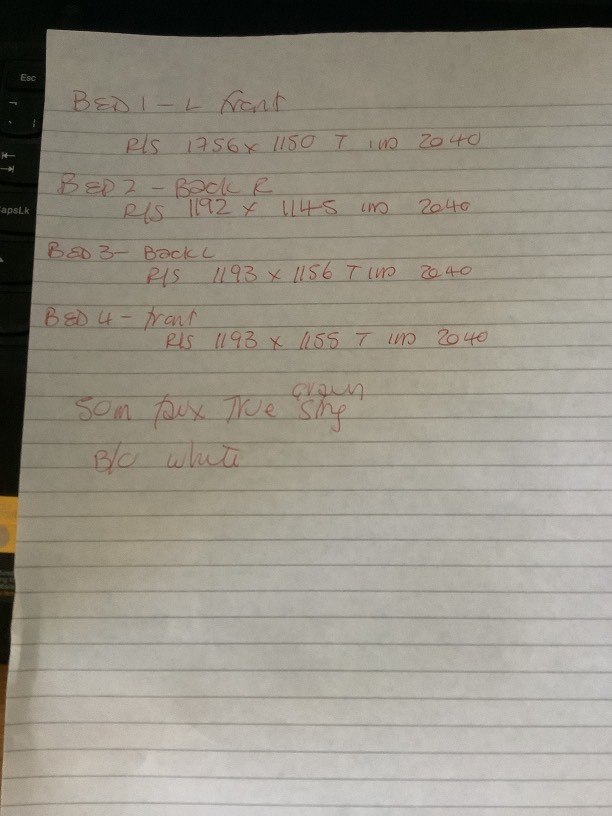 Esc
apsLk
BED 1 - L front
R/S 1756 x 1150 T IND 2040
BED 2 - Back R
R/S 1192 x 1145 IND 2040
BED 3 - Back L
R/S 1193 x 1156 T IND 2040
BED 4 - front
R/S 1193 x 1155 T IND 2040
50m faux True
B/O white